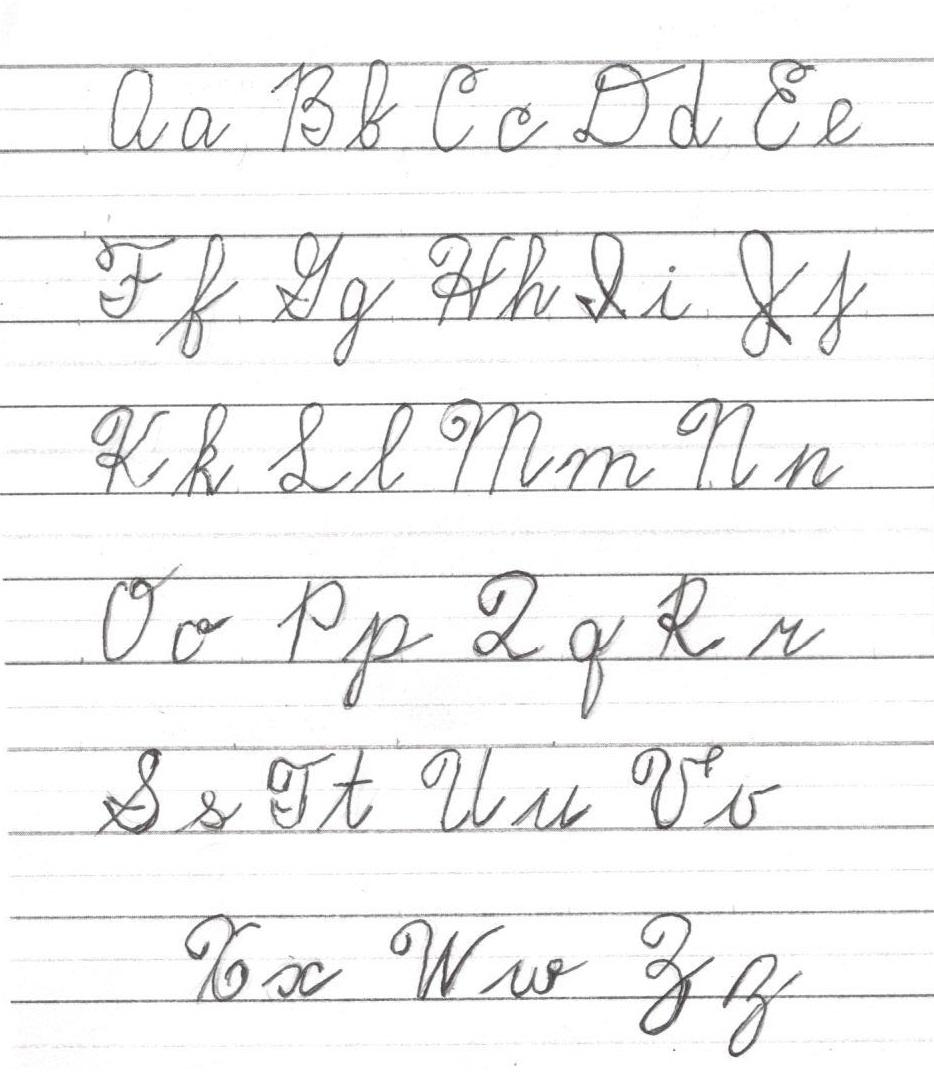 Aa Bb Cc Dd Ee
Ff Gg Hh Ii Jj
Kk Ll Mm Nn
Oo Pp Qq Rr
Ss Tt Uu Vv
Xx Ww Zz